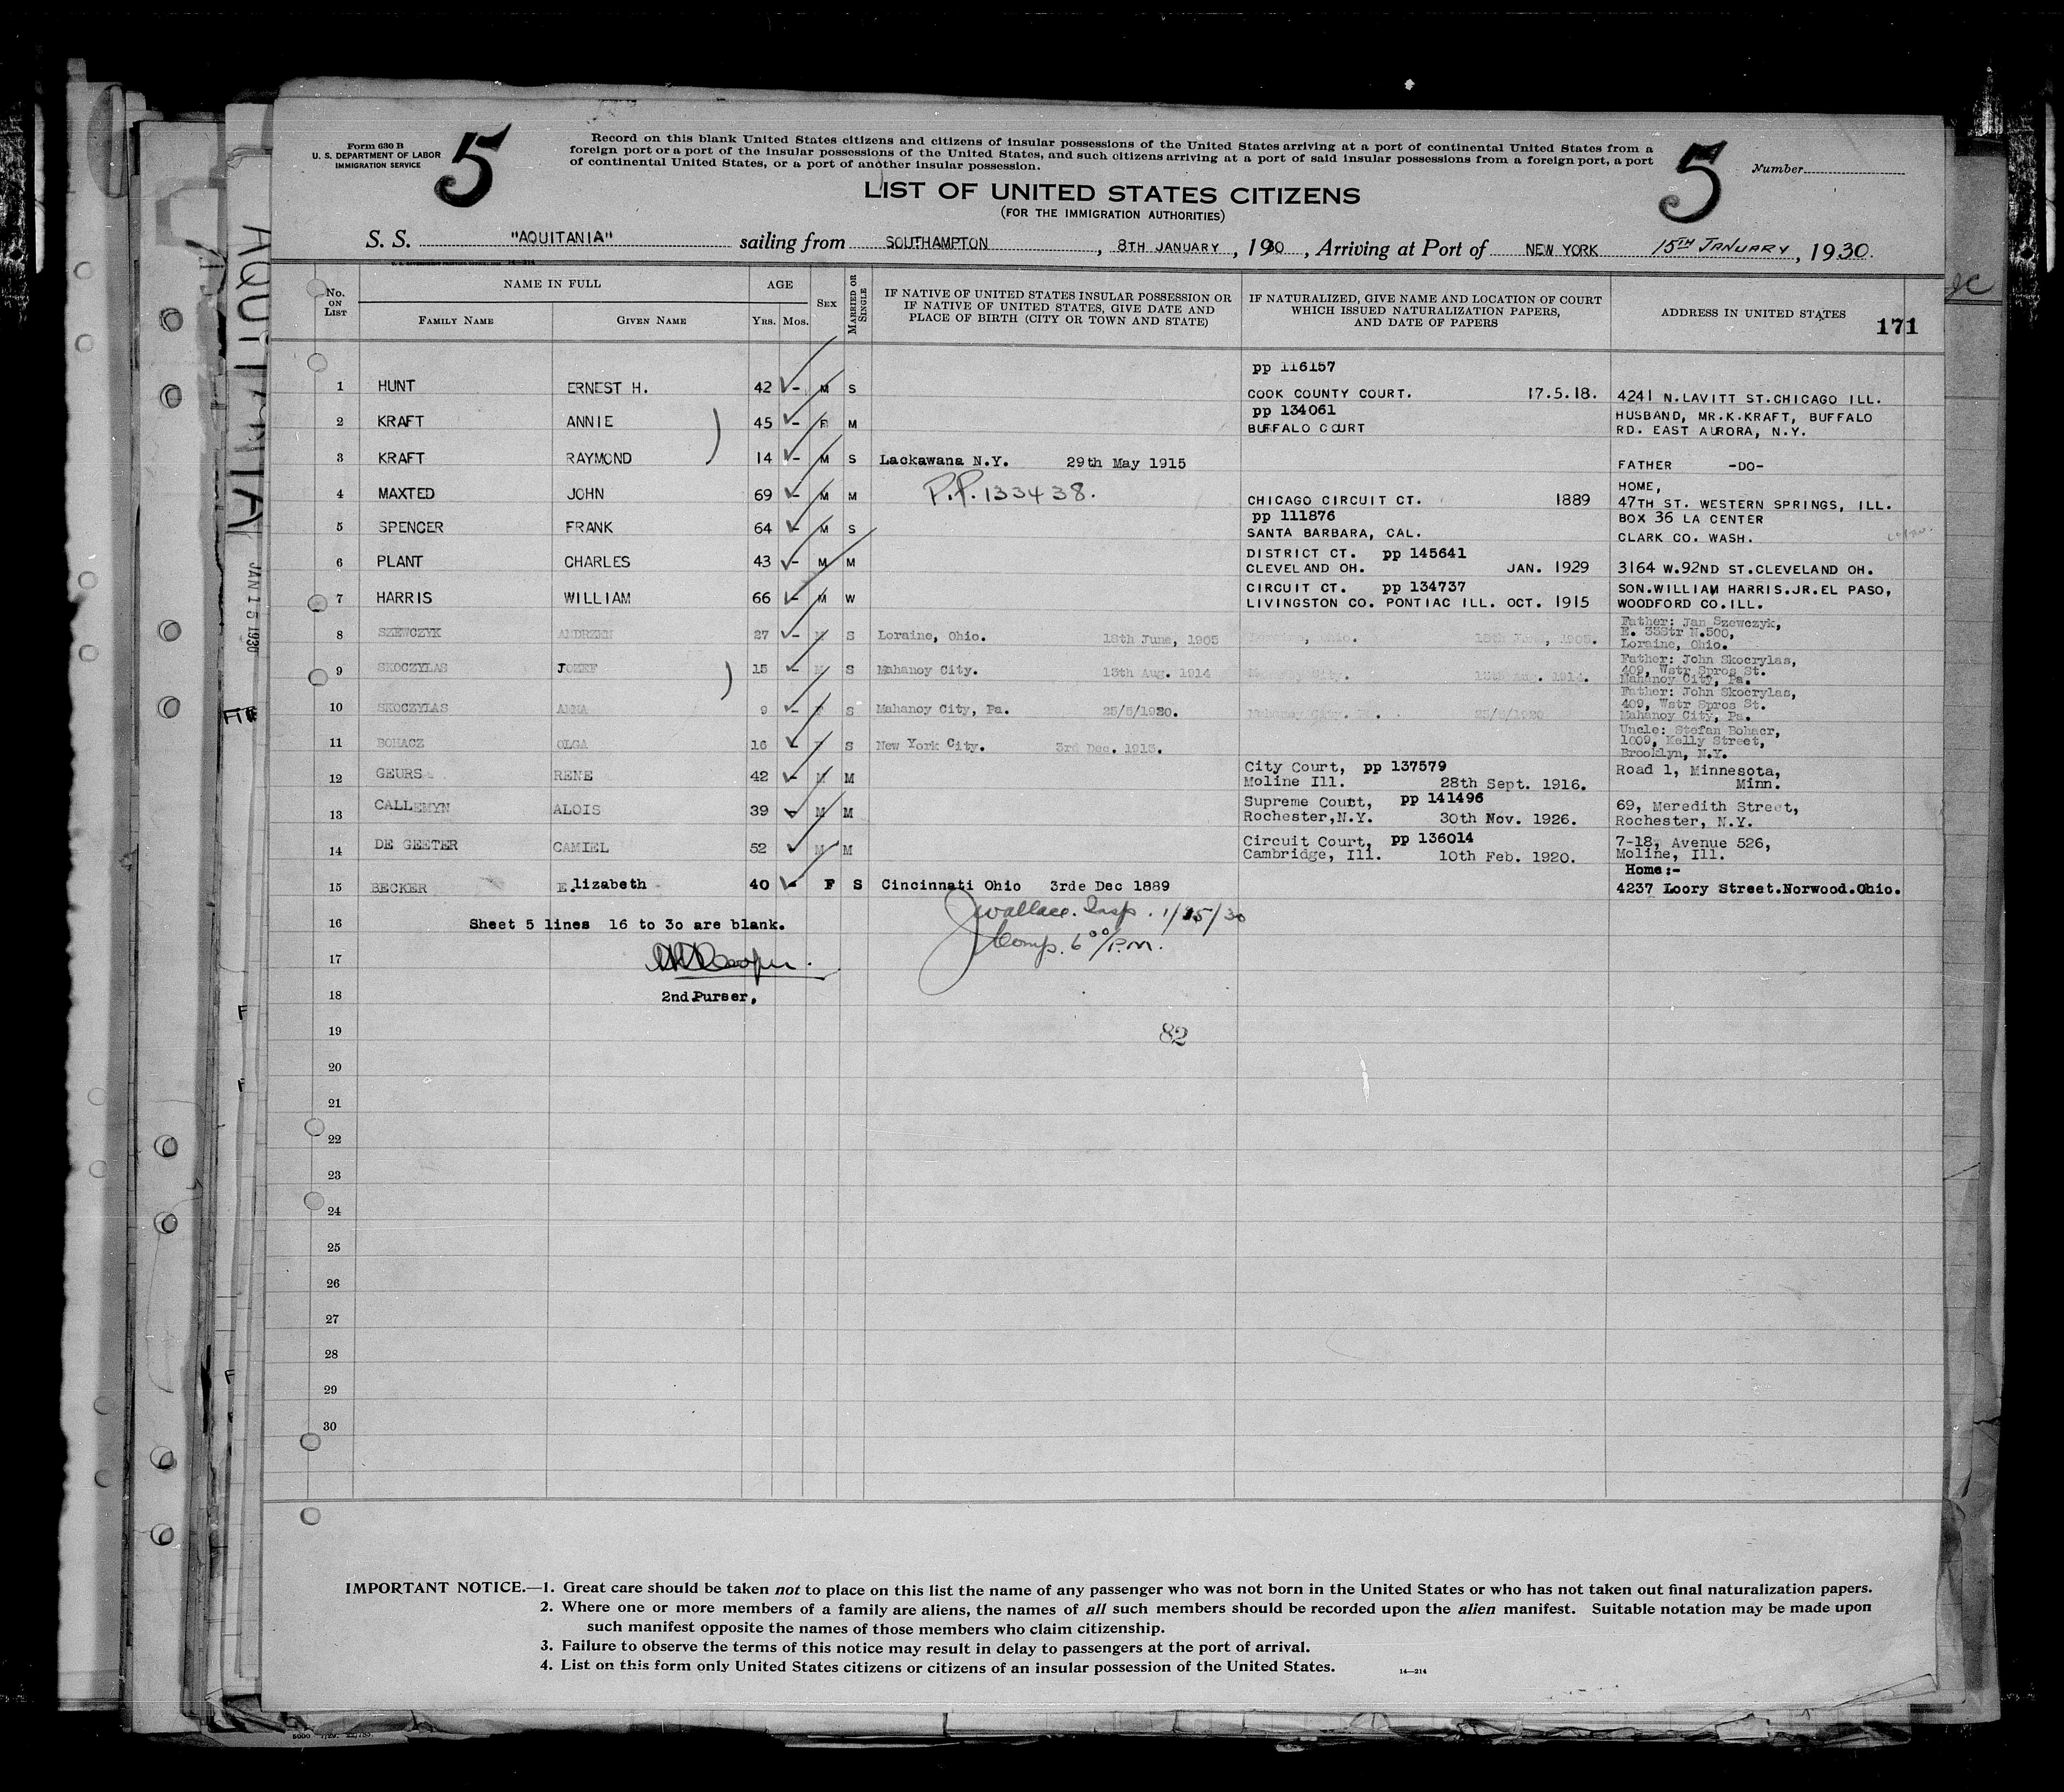 Form 630 B
U. S. DEPARTMENT OF LABOR
IMMIGRATION SERVICE
5
Record on this blank United States citizens and citizens of insular possessions of the United States arriving at a port of continental United States from a
foreign port or a port of the insular possessions of the United States, and such citizens arriving at a port of said insular possessions from a foreign port, a port
of continental United States, or a port of another insular possession.
5
Number
LIST OF UNITED STATES CITIZENS
(FOR THE IMMIGRATION AUTHORITIES)
S. S. "AQUITANIA" sailing from SOUTHAMPTON, 8TH JANUARY, 1930, Arriving at Port of NEW YORK 15TH JANUARY, 1930.
AQUITANIA
JAN 15 1930
No. ON LIST
NAME IN FULL
FAMILY NAME
GIVEN NAME
AGE
YRS. MOS.
SEX
MARRIED OR SINGLE
IF NATIVE OF UNITED STATES INSULAR POSSESSION OR
IF NATIVE OF UNITED STATES, GIVE DATE AND
PLACE OF BIRTH (CITY OR TOWN AND STATE)
IF NATURALIZED, GIVE NAME AND LOCATION OF COURT
WHICH ISSUED NATURALIZATION PAPERS,
AND DATE OF PAPERS
ADDRESS IN UNITED STATES
171
pp 116157
1 HUNT ERNEST H. 42 - M S COOK COUNTY COURT. 17.5.18. 4241 N.LAVITT ST.CHICAGO ILL.
pp 134061 HUSBAND, MR.K.KRAFT, BUFFALO
2 KRAFT ANNIE 45 - F M BUFFALO COURT RD. EAST AURORA, N.Y.
3 KRAFT RAYMOND 14 - M S Lackawana N.Y. 29th May 1915 FATHER -DO-
HOME,
4 MAXTED JOHN 69 - M M P.P. 133438. CHICAGO CIRCUIT CT. 1889 47TH ST. WESTERN SPRINGS, ILL.
pp 111876 BOX 36 LA CENTER
5 SPENCER FRANK 64 - M S SANTA BARBARA, CAL. CLARK CO. WASH.
DISTRICT CT. pp 145641
6 PLANT CHARLES 43 - M M CLEVELAND OH. JAN. 1929 3164 W.92ND ST.CLEVELAND OH.
CIRCUIT CT. pp 134737 SON.WILLIAM HARRIS.JR.EL PASO,
7 HARRIS WILLIAM 66 - M W LIVINGSTON CO. PONTIAC ILL. OCT. 1915 WOODFORD CO.ILL.
Father: Jan Szewczyk,
8 SZEWCZYK ANDRZEM 27 - M S Loraine, Ohio. 18th June, 1905 E. 33Str N.500,
Loraine, Ohio.
Father: John Skocrylas,
9 SKOCZYLAS JOZEF 15 - M S Mahanoy City. 13th Aug. 1914 409, Wstr Spros St.
Mahanoy City, Pa.
Father: John Skocrylas,
10 SKOCZYLAS ANNA 9 - F S Mahanoy City, Pa. 25/5/1920. 409, Wstr Spros St.
Mahanoy City, Pa.
Uncle: Stefan Bohacr,
11 BOHACZ OLGA 16 - F S New York City. 3rd Dec. 1913. 1009, Kelly Street,
Brooklyn, N.Y.
City Court, pp 137579 Road 1, Minnesota,
12 GEURS RENE 42 - M M Moline Ill. 28th Sept. 1916. Minn.
Supreme Court, pp 141496 69, Meredith Street,
13 CALLEMYN ALOIS 39 - M M Rochester,N.Y. 30th Nov. 1926. Rochester, N.Y.
Circuit Court, pp 136014 7-18, Avenue 526,
14 DE GEETER CAMIEL 52 M M Cambridge, Ill. 10th Feb. 1920. Moline, Ill.
Home:-
15 BECKER Elizabeth 40 - F S Cincinnati Ohio 3rde Dec 1889 4237 Loory Street.Norwood.Ohio.
16 Sheet 5 lines 16 to 3o are blank. J Wallace. Insp. 1/15/30
Comp. 6 00/P.M.
17
18 2nd Purser,
19 82
20
21
22
23
24
25
26
27
28
29
30
IMPORTANT NOTICE.—1. Great care should be taken not to place on this list the name of any passenger who was not born in the United States or who has not taken out final naturalization papers.
2. Where one or more members of a family are aliens, the names of all such members should be recorded upon the alien manifest. Suitable notation may be made upon
such manifest opposite the names of those members who claim citizenship.
3. Failure to observe the terms of this notice may result in delay to passengers at the port of arrival.
4. List on this form only United States citizens or citizens of an insular possession of the United States.
14—214